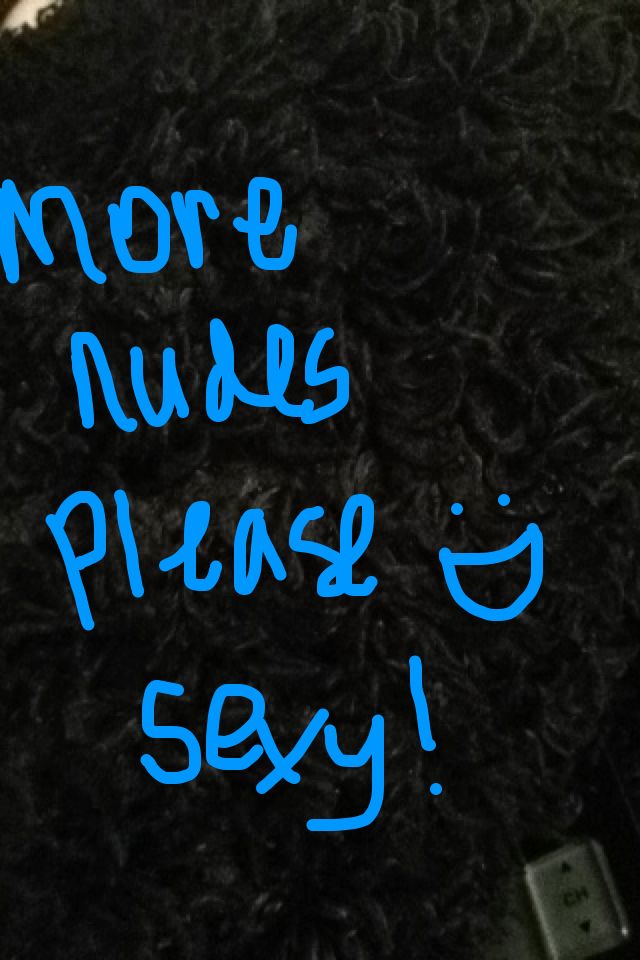 more
nudes
please
sexy!
CH